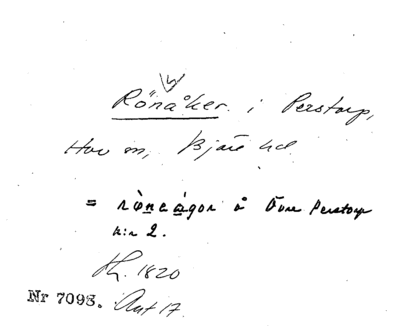 Rönåker i Perstorp,
Hov sn, Bjäre hd
= rònaågor å Övre Perstorp
h:n 2.
1820
Nr 7098. Ant 17.